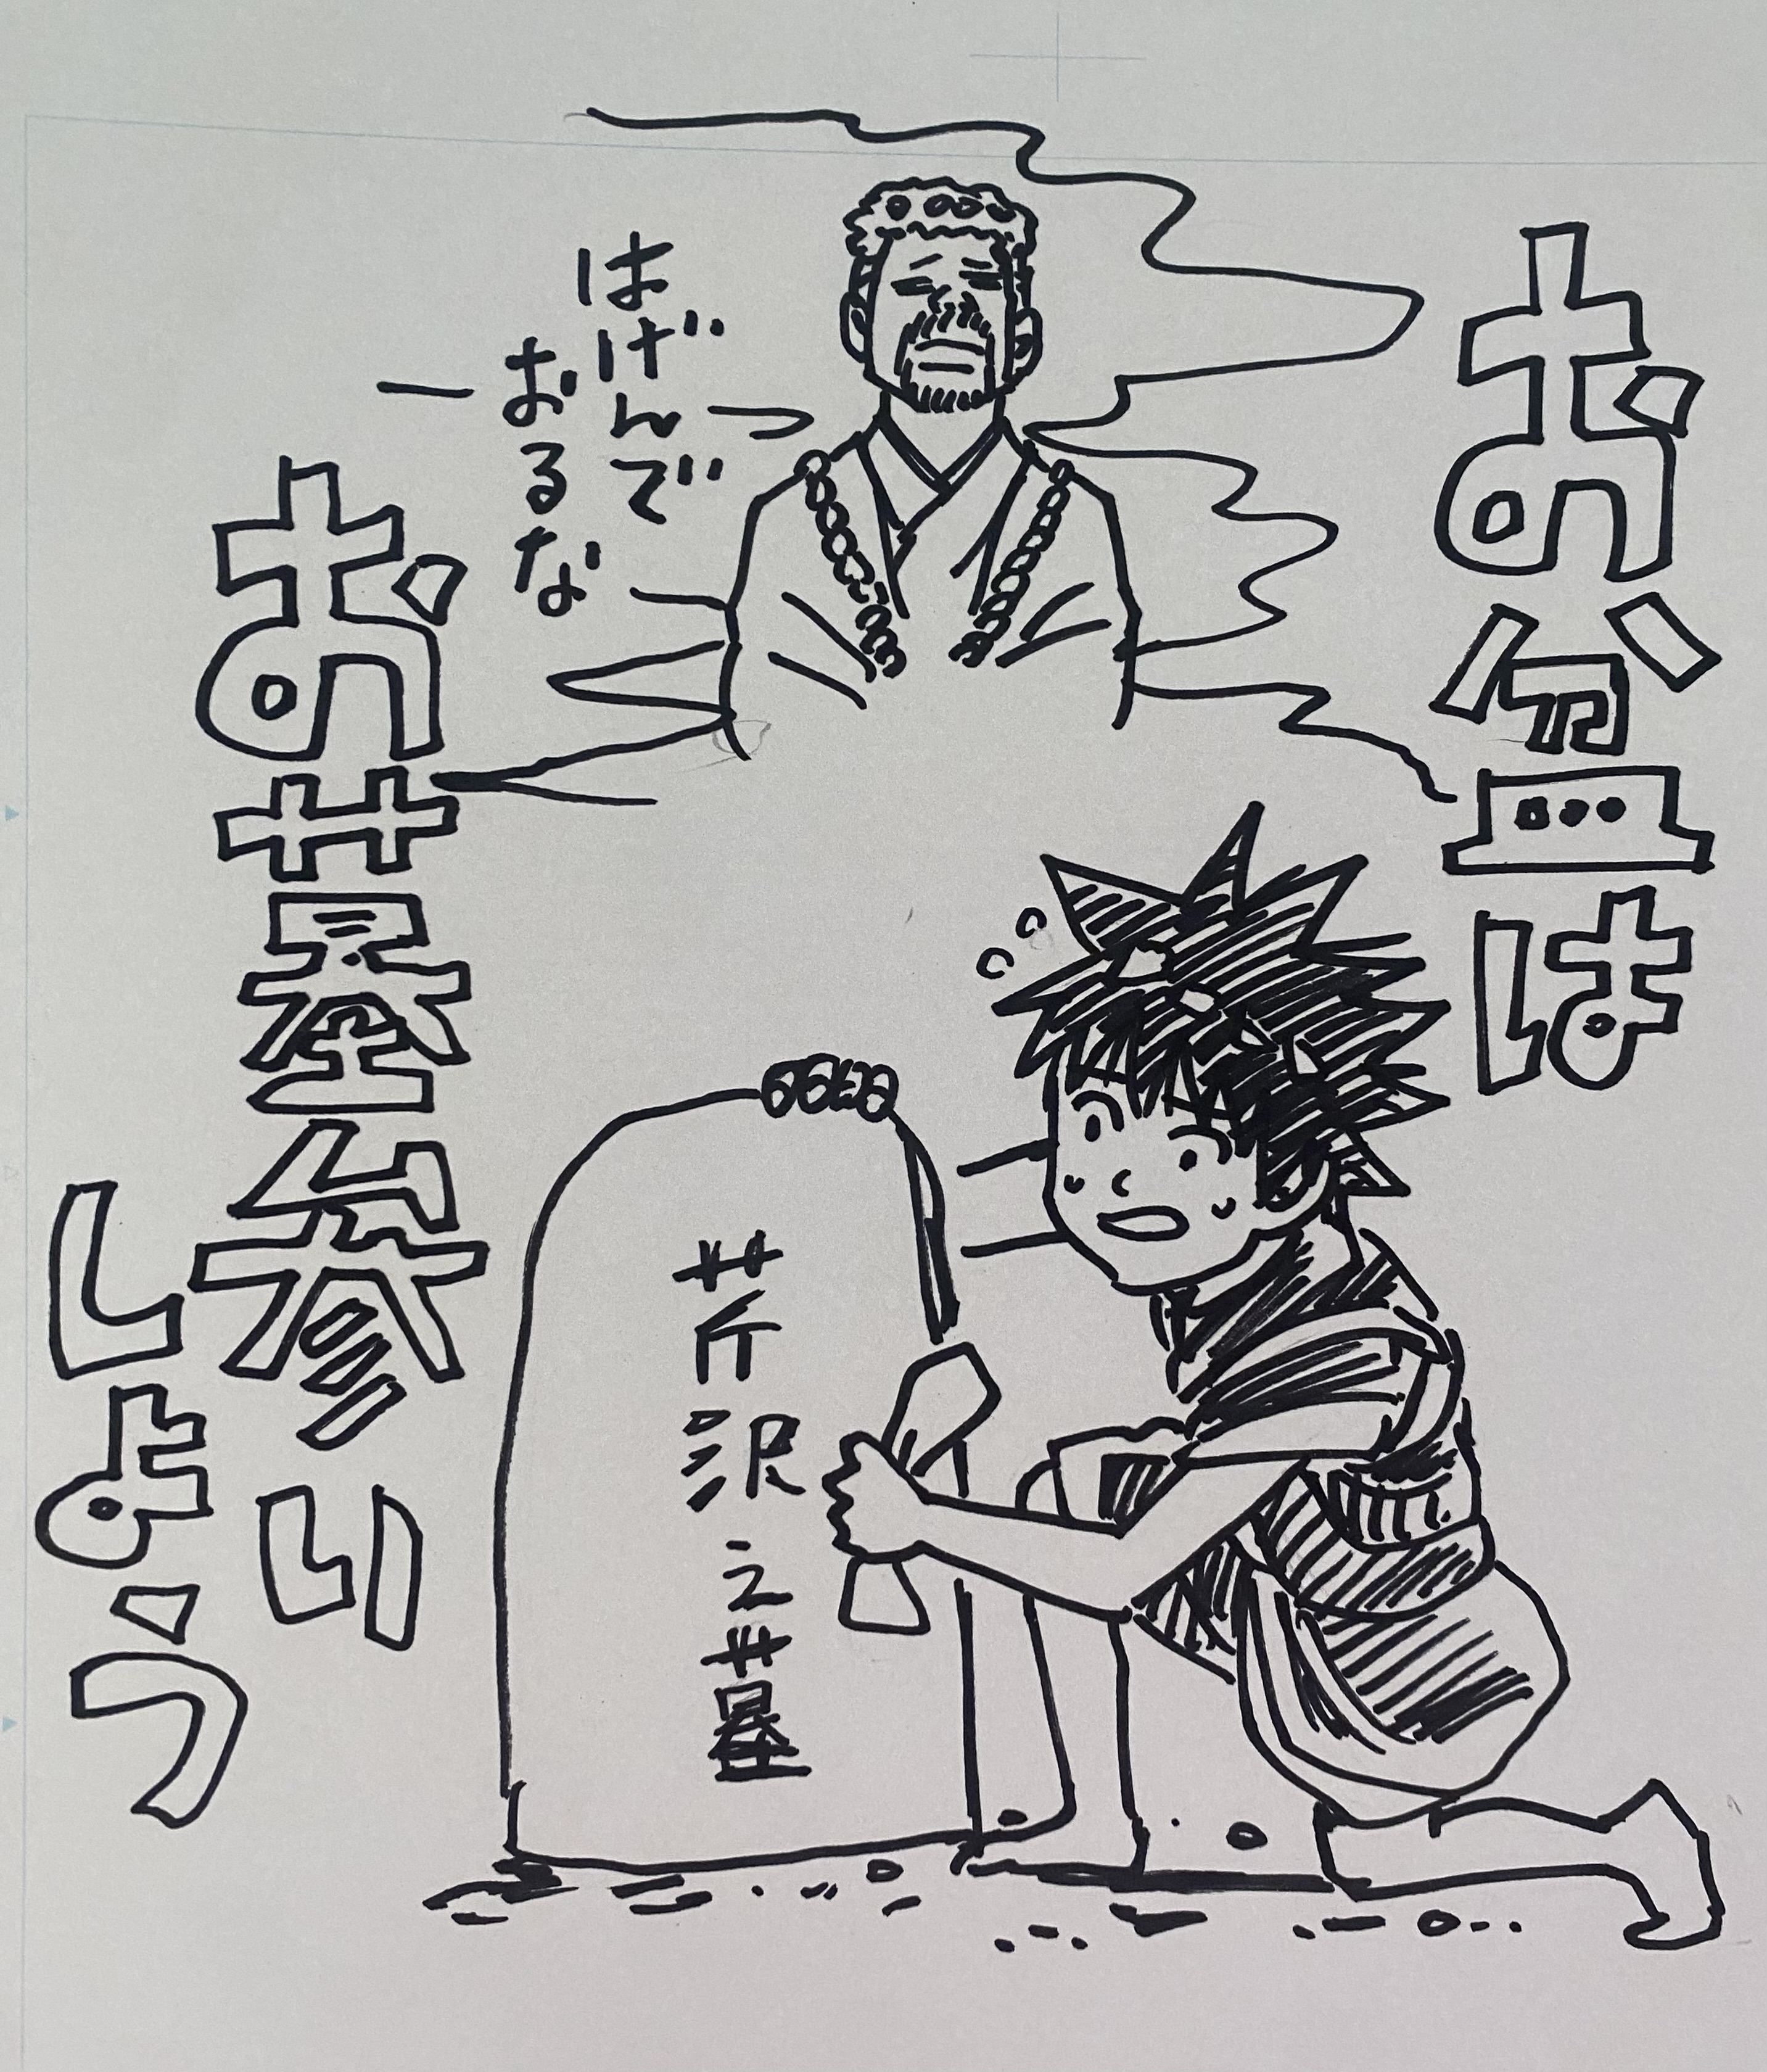 お盆は
はげんで
おるな
お墓参り
しよう
芹沢之墓